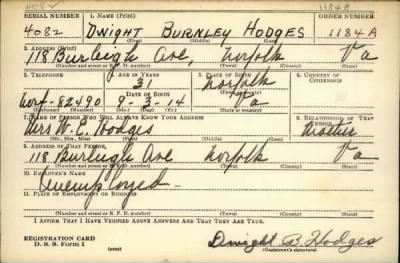 4082 1184 A
SERIAL NUMBER 1. NAME (Print) ORDER NUMBER
4082 DWIGHT BURNLEY HODGES 1184 A
(First) (Middle) (Last)
2. ADDRESS (Print)
118 Burleigh Ave, Norfolk Va
(Number and street or R. F. D. number) (Town) (County) (State)
3. TELEPHONE 4. AGE IN YEARS 5. PLACE OF BIRTH 6. COUNTRY OF CITIZENSHIP
31 Norfolk
DATE OF BIRTH (Town or county)
Norf-82490 9-3-14 Va
(Exchange) (Number) (Mo.) (Day) (Yr.) (State or country)
7. NAME OF PERSON WHO WILL ALWAYS KNOW YOUR ADDRESS 8. RELATIONSHIP OF THAT PERSON
Mrs W. E. Hodges Mother
(Mr., Mrs., Miss) (First) (Middle) (Last)
9. ADDRESS OF THAT PERSON
118 Burleigh Ave Norfolk Va
(Number and street or R. F. D. number) (Town) (County) (State)
10. EMPLOYER'S NAME
Unemployed
11. PLACE OF EMPLOYMENT OR BUSINESS
(Number and street or R. F. D. number) (Town) (County) (State)
I AFFIRM THAT I HAVE VERIFIED ABOVE ANSWERS AND THAT THEY ARE TRUE.
REGISTRATION CARD
D. S. S. Form 1 (over) Dwight B. Hodges
(Registrant's signature)